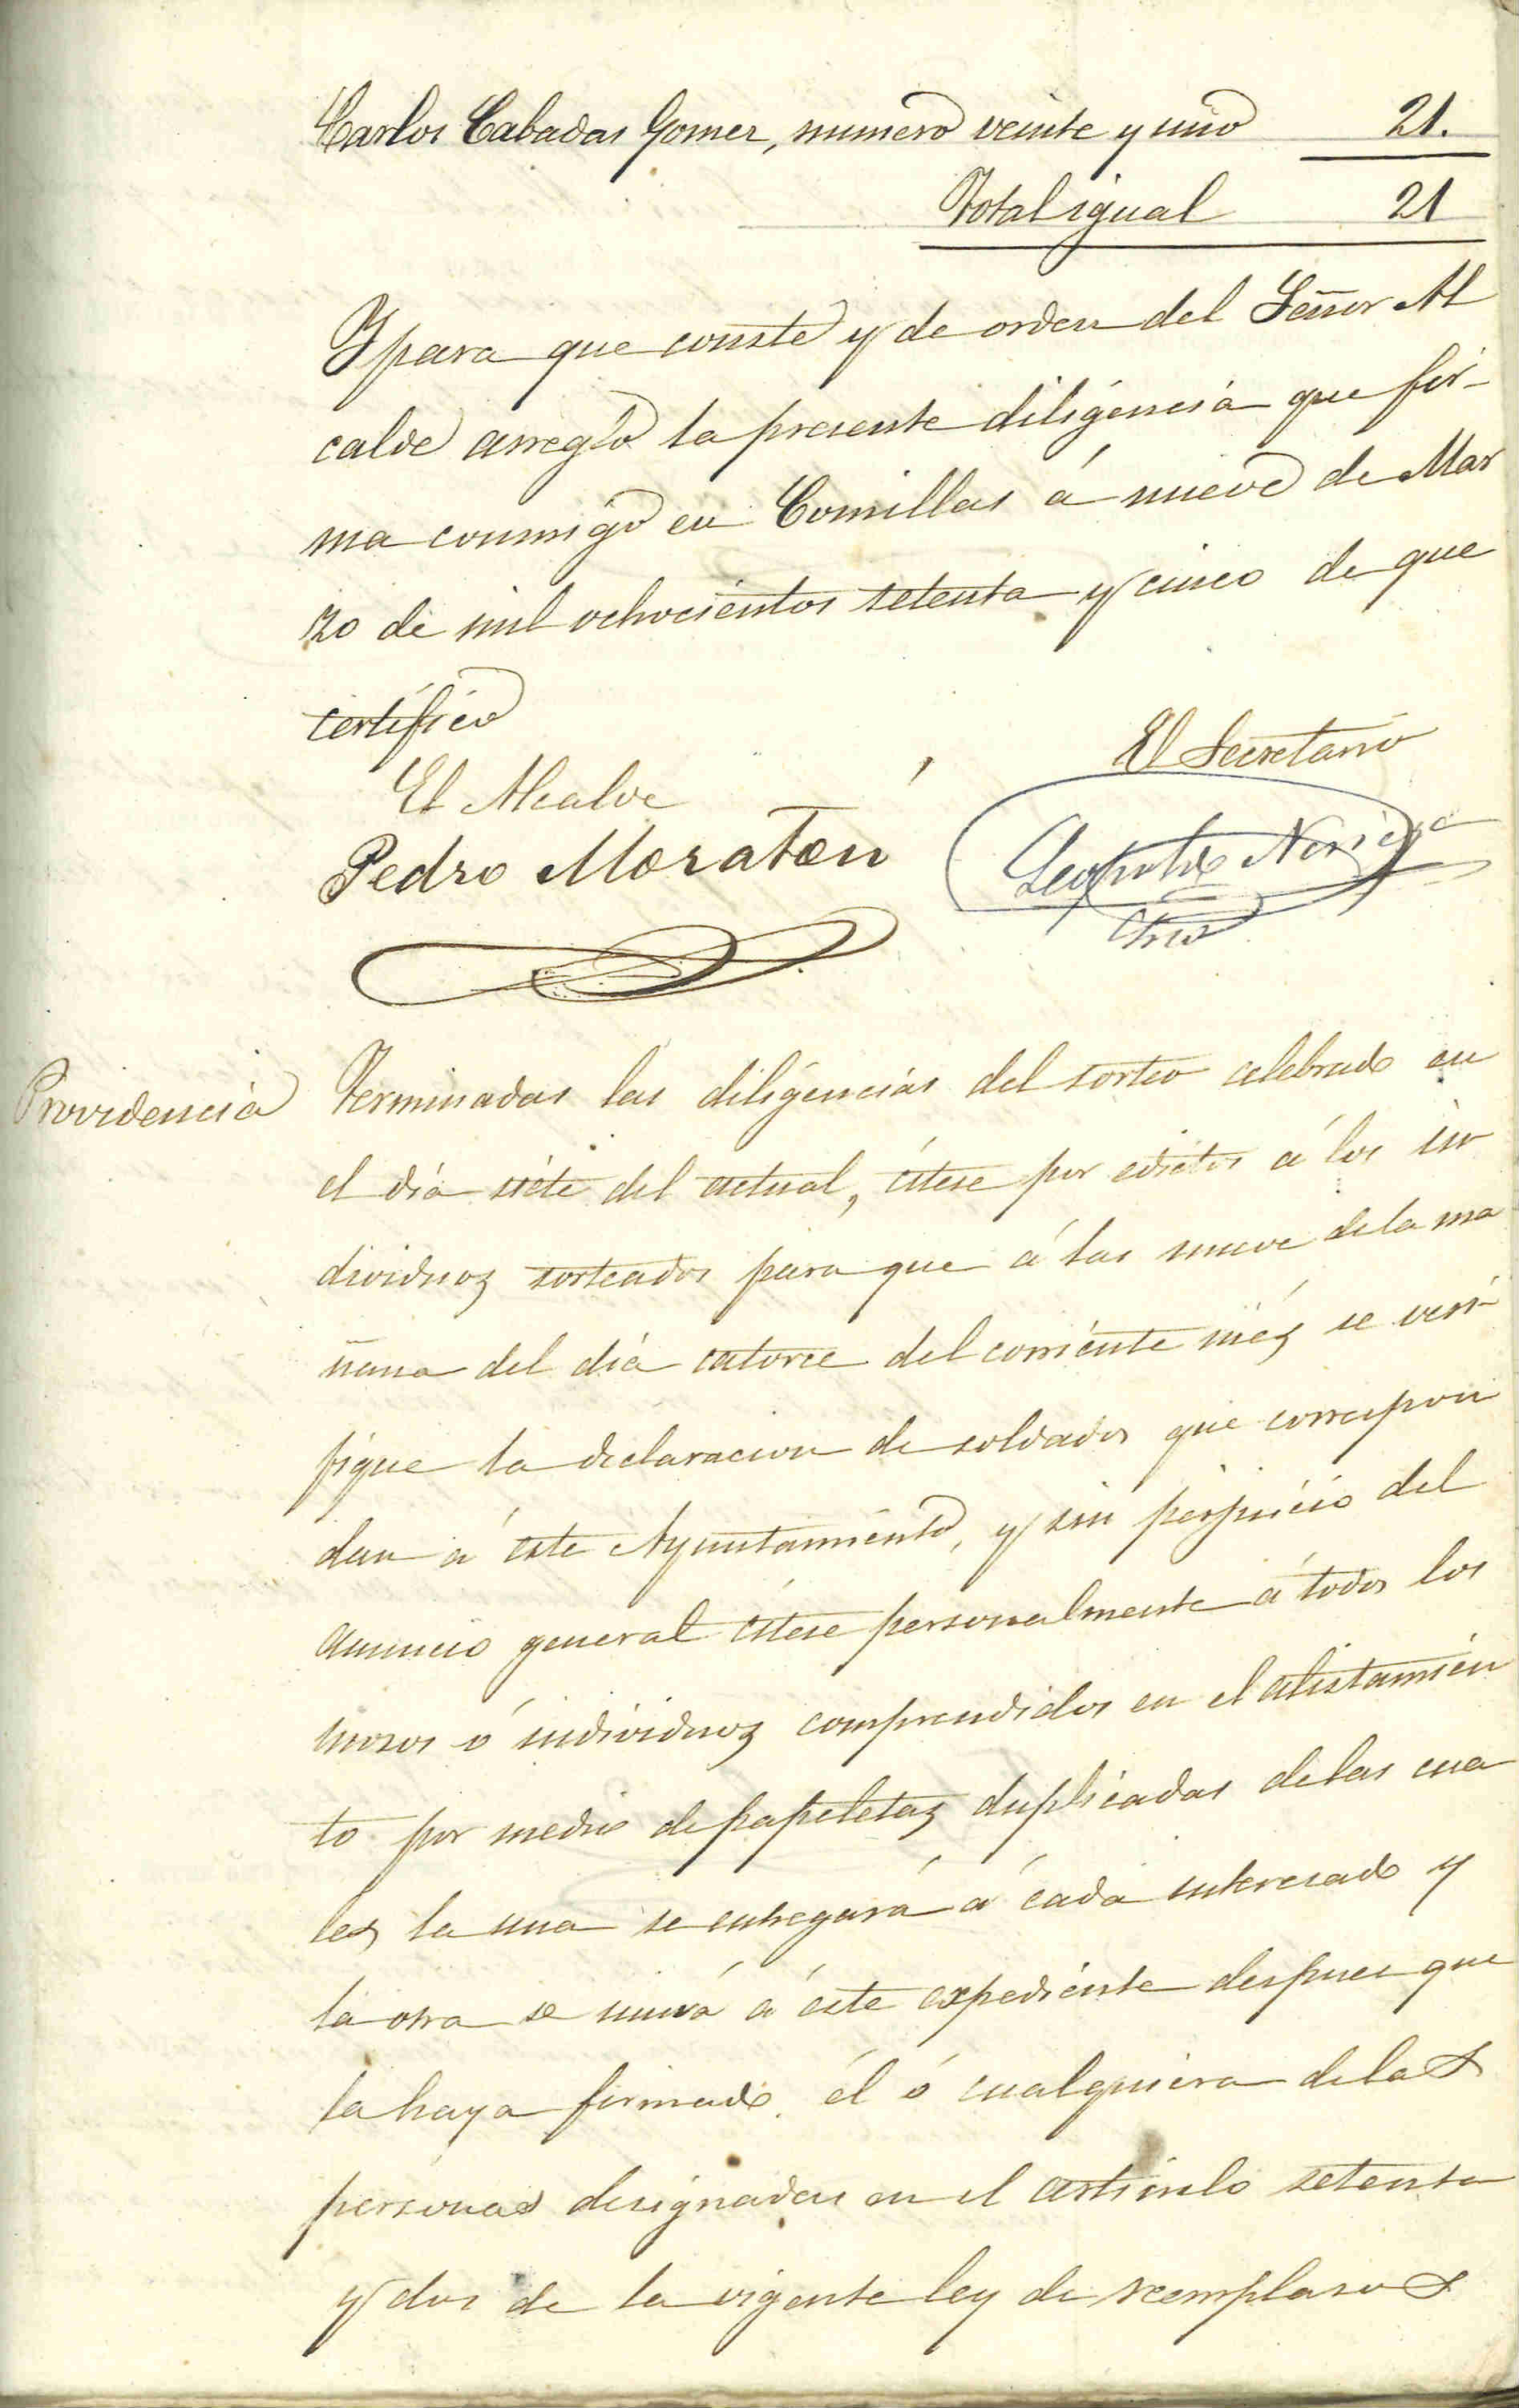 Carlos Cabadas Gomez, numero veinte y uno 21.
Total igual 21
Y para que conste y de orden del Señor Al
calde arreglo la presente diligéncia que fir-
ma conmigo en Comillas á nueve de Mar
zo de mil ochocientos setenta y cinco de que
certifico
El Alcalde
El Secretario
Pedro Moraton
Leopoldo Noriega
Providencia
Terminadas las diligencias del sorteo celebrado en
el dia siete del actual, cítese por edictos á los in
dividuoz sorteados para que á las nueve de la ma
ñana del dia catorce del corriente méz se veri-
fique la declaracion de soldados que correspon
dan á este Ayuntamiento, y sin perjuicio del
anuncio general cítese personalmente á todos los
mozos ó individuoz comprendidos en el alistamien
to por medio de papeletaz duplicadas de las cua
les la una se entregará á cada interesado y
la otra se unirá á éste expediente despues que
la haya firmado él ó cualquiera de las
personas designadas en el artículo setenta
y dos de la vigente ley de reemplazos